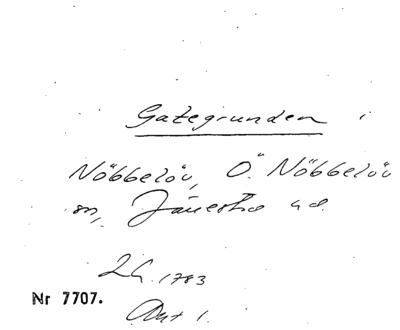 Gategrunden i
Nöbbelöv, Ö. Nöbbelöv
sn, Järrestad hd.
1783
Nr 7707.